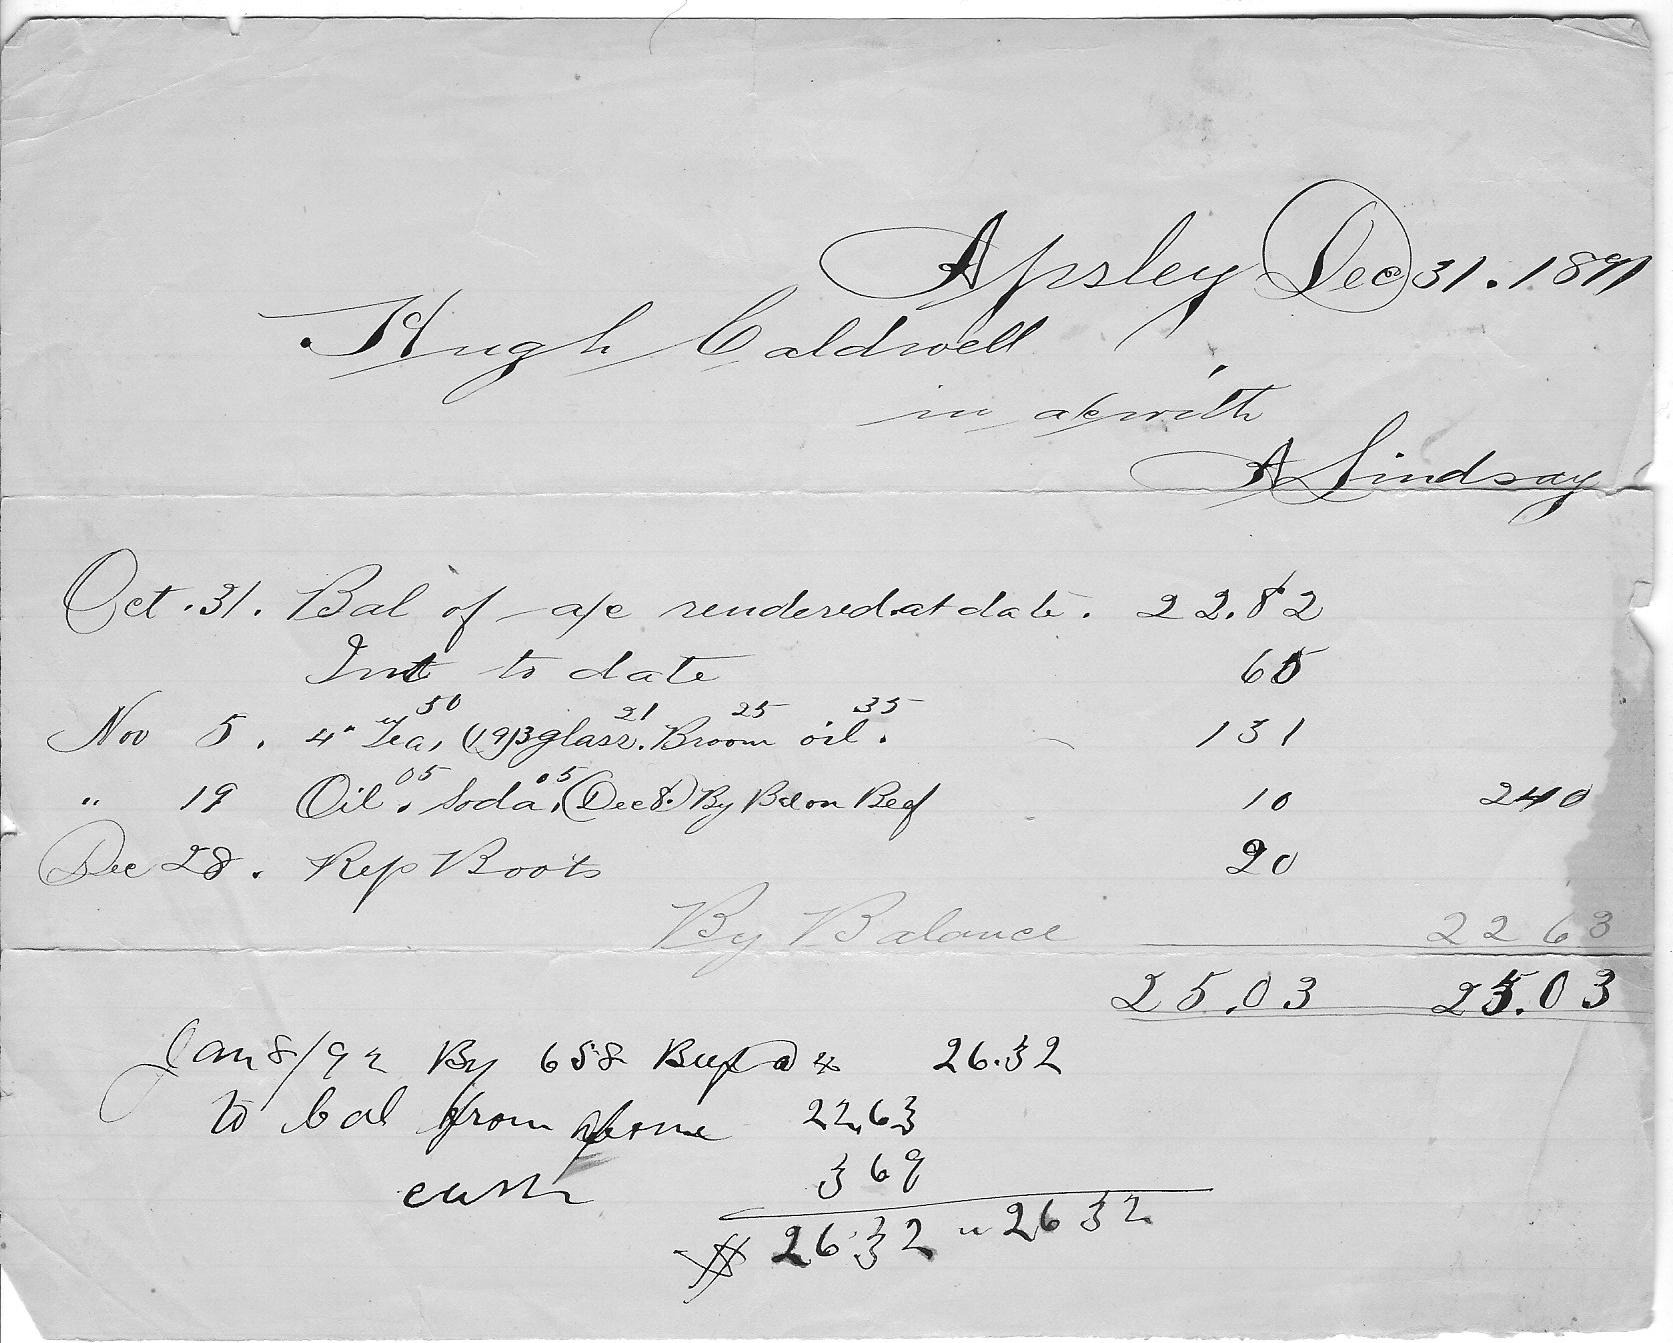 Apsley Dec 31. 1891
Hugh Caldwell
in a/c with
A Lindsay
Oct. 31. Bal of a/c rendered at date. 22.82
Int to date 60
50 21 25 35
Nov 5. 4" Tea, (19)3 glass. Broom oil. 131
05 05
" 19 Oil, Soda, (Dec 8.) By Bal on Beef 10 240
Dec 28. Rep Boots 20
By Balance 22 63
25.03 25.03
Jan 8/92 By 658 Beef @ 4 26.32
to bal from above 22.63
cash 3 69
$ 26.32 " 26 32